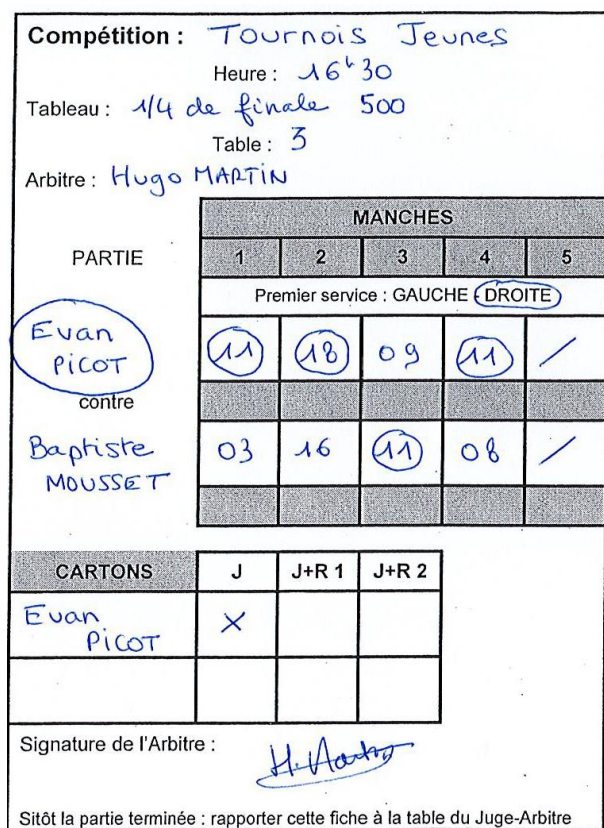 Compétition : Tournois Jeunes
Heure : 16h30
Tableau : 1/4 de finale 500
Table : 3
Arbitre : Hugo MARTIN
MANCHES
PARTIE 1 2 3 4 5
Premier service : GAUCHE - DROITE
Evan
PICOT
11 18 09 11 /
contre
Baptiste
MOUSSET
03 16 11 08 /
CARTONS J J+R 1 J+R 2
Evan
PICOT
X
Signature de l'Arbitre : H. Martin
Sitôt la partie terminée : rapporter cette fiche à la table du Juge-Arbitre